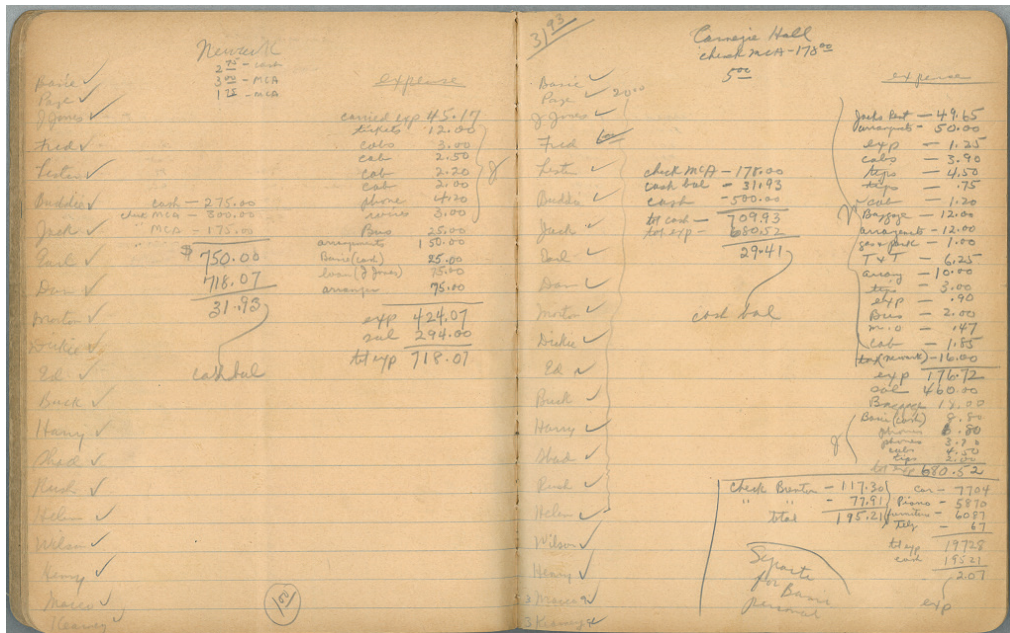 Newark
2 75 - cash
3 00 - MCA
1 75 - MCA
expense
Basie ✓
Page ✓
J Jones ✓
Fred ✓
Lester ✓
Buddie ✓
Jack ✓
Earl ✓
Dan ✓
Morton ✓
Dickie ✓
Ed ✓
Buck ✓
Harry ✓
Shad ✓
Rush ✓
Helen ✓
Wilson ✓
Henry ✓
Marco ✓
Kearney ✓
cash - 275.00
chk MCA - 300.00
" MCA - 175.00
$ 750.00
718.07
31.93
cash bal
carried exp 45.17
tickets 12.00
cabs 3.00
cab 2.50
cab 2.20
cab 2.00
phone 4.20
wires 3.00
Bus 25.00
arrangements 150.00
Basie (cash) 25.00
loan (J Jones) 75.00
arranger 75.00
exp 424.07
sal 294.00
tot exp 718.07
100
31 93
Carnegie Hall
check MCA - 178 00
5 00
expense
Basie ✓
Page ✓ 20.00
J Jones ✓
Fred
Lester ✓
Buddie ✓
Jack ✓
Earl ✓
Dan ✓
Morton ✓
Dickie ✓
Ed ✓
Buck ✓
Harry ✓
Shad ✓
Rush ✓
Helen ✓
Wilson ✓
Henry ✓
3 Marco
3 Kearney
check MCA - 178.00
cash bal - 31.93
cash - 500.00
tot cash - 709.93
tot exp - 680.52
29.41
cash bal
Jacks Rent - 49.65
arrangmts - 50.00
exp - 1.25
cabs - 3.90
tips - 4.50
tips - .75
cab - 1.20
Baggage - 12.00
arrangmts - 12.00
gas & park - 1.00
T & T - 6.25
arrang - 10.00
tips - 3.00
exp - .90
Bus - 2.00
m.o - .47
cab - 1.85
(newark) - 16.00
exp 176.72
sal 460.00
Baggage
Basie (cash) 8.80
phones
phones
cabs 4.50
tips 2.00
tot exp 680.52
check Brenton - 117.30
" " - 77.91
total 195.21
car - 7704
Piano - 5870
furniture - 6087
- 67
tot exp 19728
cash 19521
2.07
exp
Separate
for Basie
personal